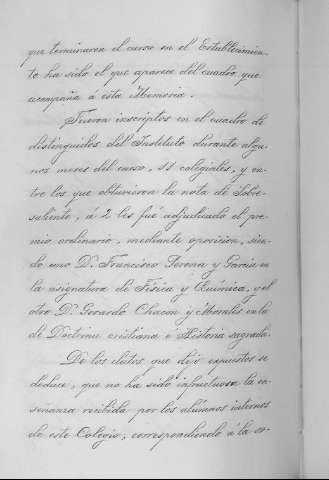 que terminaron el curso en el Establecimien-
to ha sido el que aparece del cuadro que
acompaña á esta Memoria.
Fueron inscriptos en el cuadro de
distinguidos del Instituto durante algu-
nos meses del curso, 11 colegiales, y en-
tre los que obtuvieron la nota de Sobre-
saliente, á 2 les fué adjudicado el pre-
mio ordinario, mediante oposicion, sien-
do uno D. Francisco y Garcia en
la asignatura de Fisica y Quimica, y el
otro D. Gerardo Chacon y Morales en la
de Doctrina cristiana é Historia sagrada.
De los datos, que dejo expuestos se
deduce, que no ha sido infructuosa la en-
señanza recibida por los alumnos internos
de este Colegio; correspondiendo á la es-